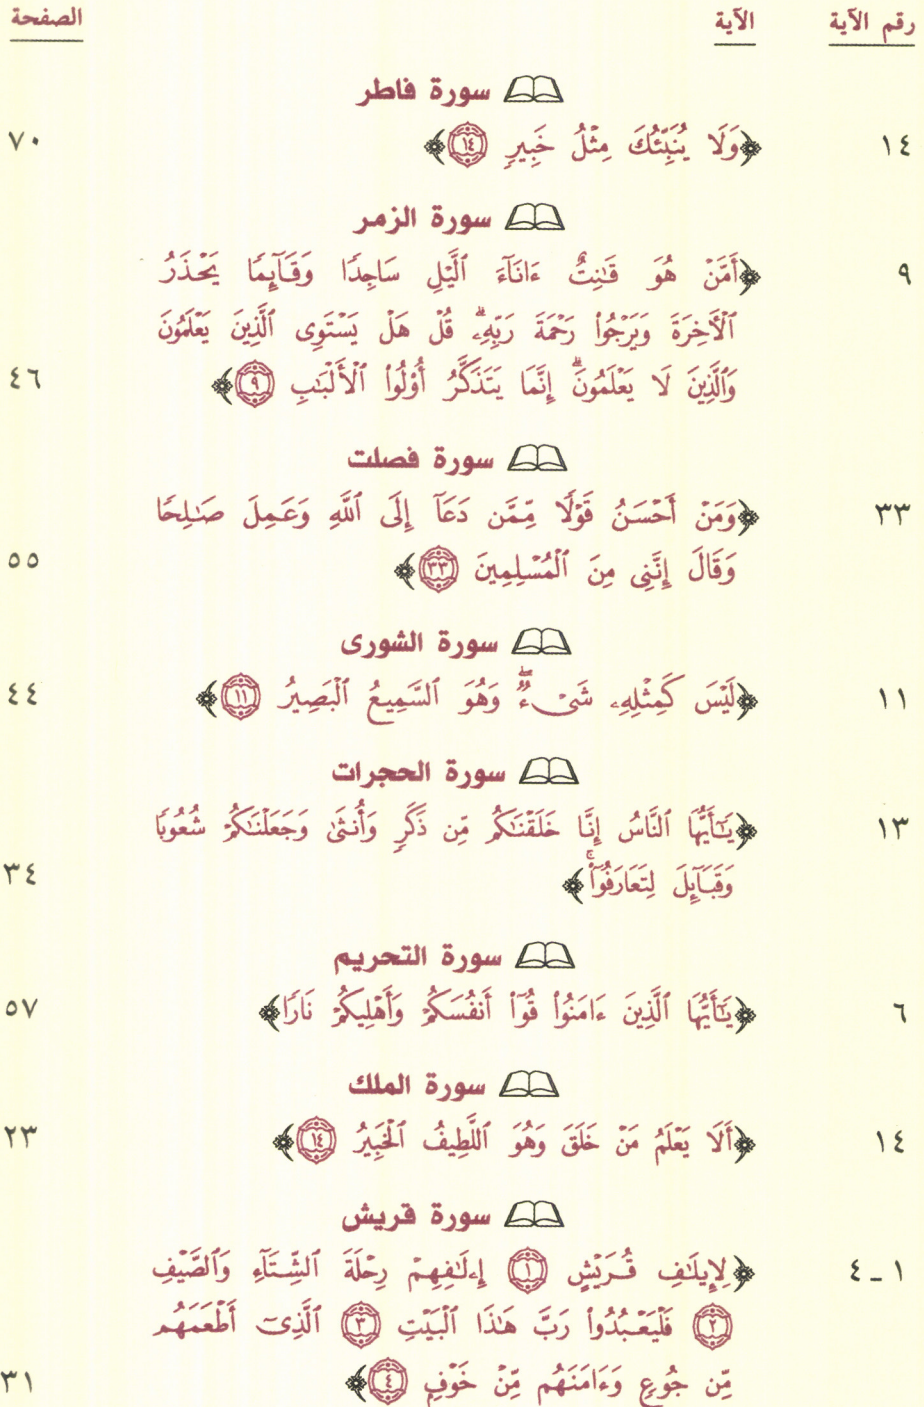 رقم الآية الآية الصفحة
سورة فاطر
١٤ ﴿وَلَا يُنَبِّئُكَ مِثْلُ خَبِيرٍ ۝١٤﴾ ٧٠
سورة الزمر
٩ ﴿أَمَّنْ هُوَ قَٰنِتٌ ءَانَآءَ ٱلَّيْلِ سَاجِدًا وَقَآئِمًا يَحْذَرُ
ٱلْأَخِرَةَ وَيَرْجُوا۟ رَحْمَةَ رَبِّهِۦۗ قُلْ هَلْ يَسْتَوِى ٱلَّذِينَ يَعْلَمُونَ
وَٱلَّذِينَ لَا يَعْلَمُونَۗ إِنَّمَا يَتَذَكَّرُ أُو۟لُوا۟ ٱلْأَلْبَٰبِ ۝٩﴾ ٤٦
سورة فصلت
٣٣ ﴿وَمَنْ أَحْسَنُ قَوْلًا مِّمَّن دَعَآ إِلَى ٱللَّهِ وَعَمِلَ صَٰلِحًا
وَقَالَ إِنَّنِى مِنَ ٱلْمُسْلِمِينَ ۝٣٣﴾ ٥٥
سورة الشورى
١١ ﴿لَيْسَ كَمِثْلِهِۦ شَىْءٌۖ وَهُوَ ٱلسَّمِيعُ ٱلْبَصِيرُ ۝١١﴾ ٤٤
سورة الحجرات
١٣ ﴿يَٰٓأَيُّهَا ٱلنَّاسُ إِنَّا خَلَقْنَٰكُم مِّن ذَكَرٍ وَأُنثَىٰ وَجَعَلْنَٰكُمْ شُعُوبًا
وَقَبَآئِلَ لِتَعَارَفُوٓا۟ۚ﴾ ٣٤
سورة التحريم
٦ ﴿يَٰٓأَيُّهَا ٱلَّذِينَ ءَامَنُوا۟ قُوٓا۟ أَنفُسَكُمْ وَأَهْلِيكُمْ نَارًا﴾ ٥٧
سورة الملك
١٤ ﴿أَلَا يَعْلَمُ مَنْ خَلَقَ وَهُوَ ٱللَّطِيفُ ٱلْخَبِيرُ ۝١٤﴾ ٢٣
سورة قريش
١ - ٤ ﴿لِإِيلَٰفِ قُرَيْشٍ ۝١ إِۦلَٰفِهِمْ رِحْلَةَ ٱلشِّتَآءِ وَٱلصَّيْفِ
۝٢ فَلْيَعْبُدُوا۟ رَبَّ هَٰذَا ٱلْبَيْتِ ۝٣ ٱلَّذِىٓ أَطْعَمَهُم
مِّن جُوعٍ وَءَامَنَهُم مِّنْ خَوْفٍۭ ۝٤﴾ ٣١